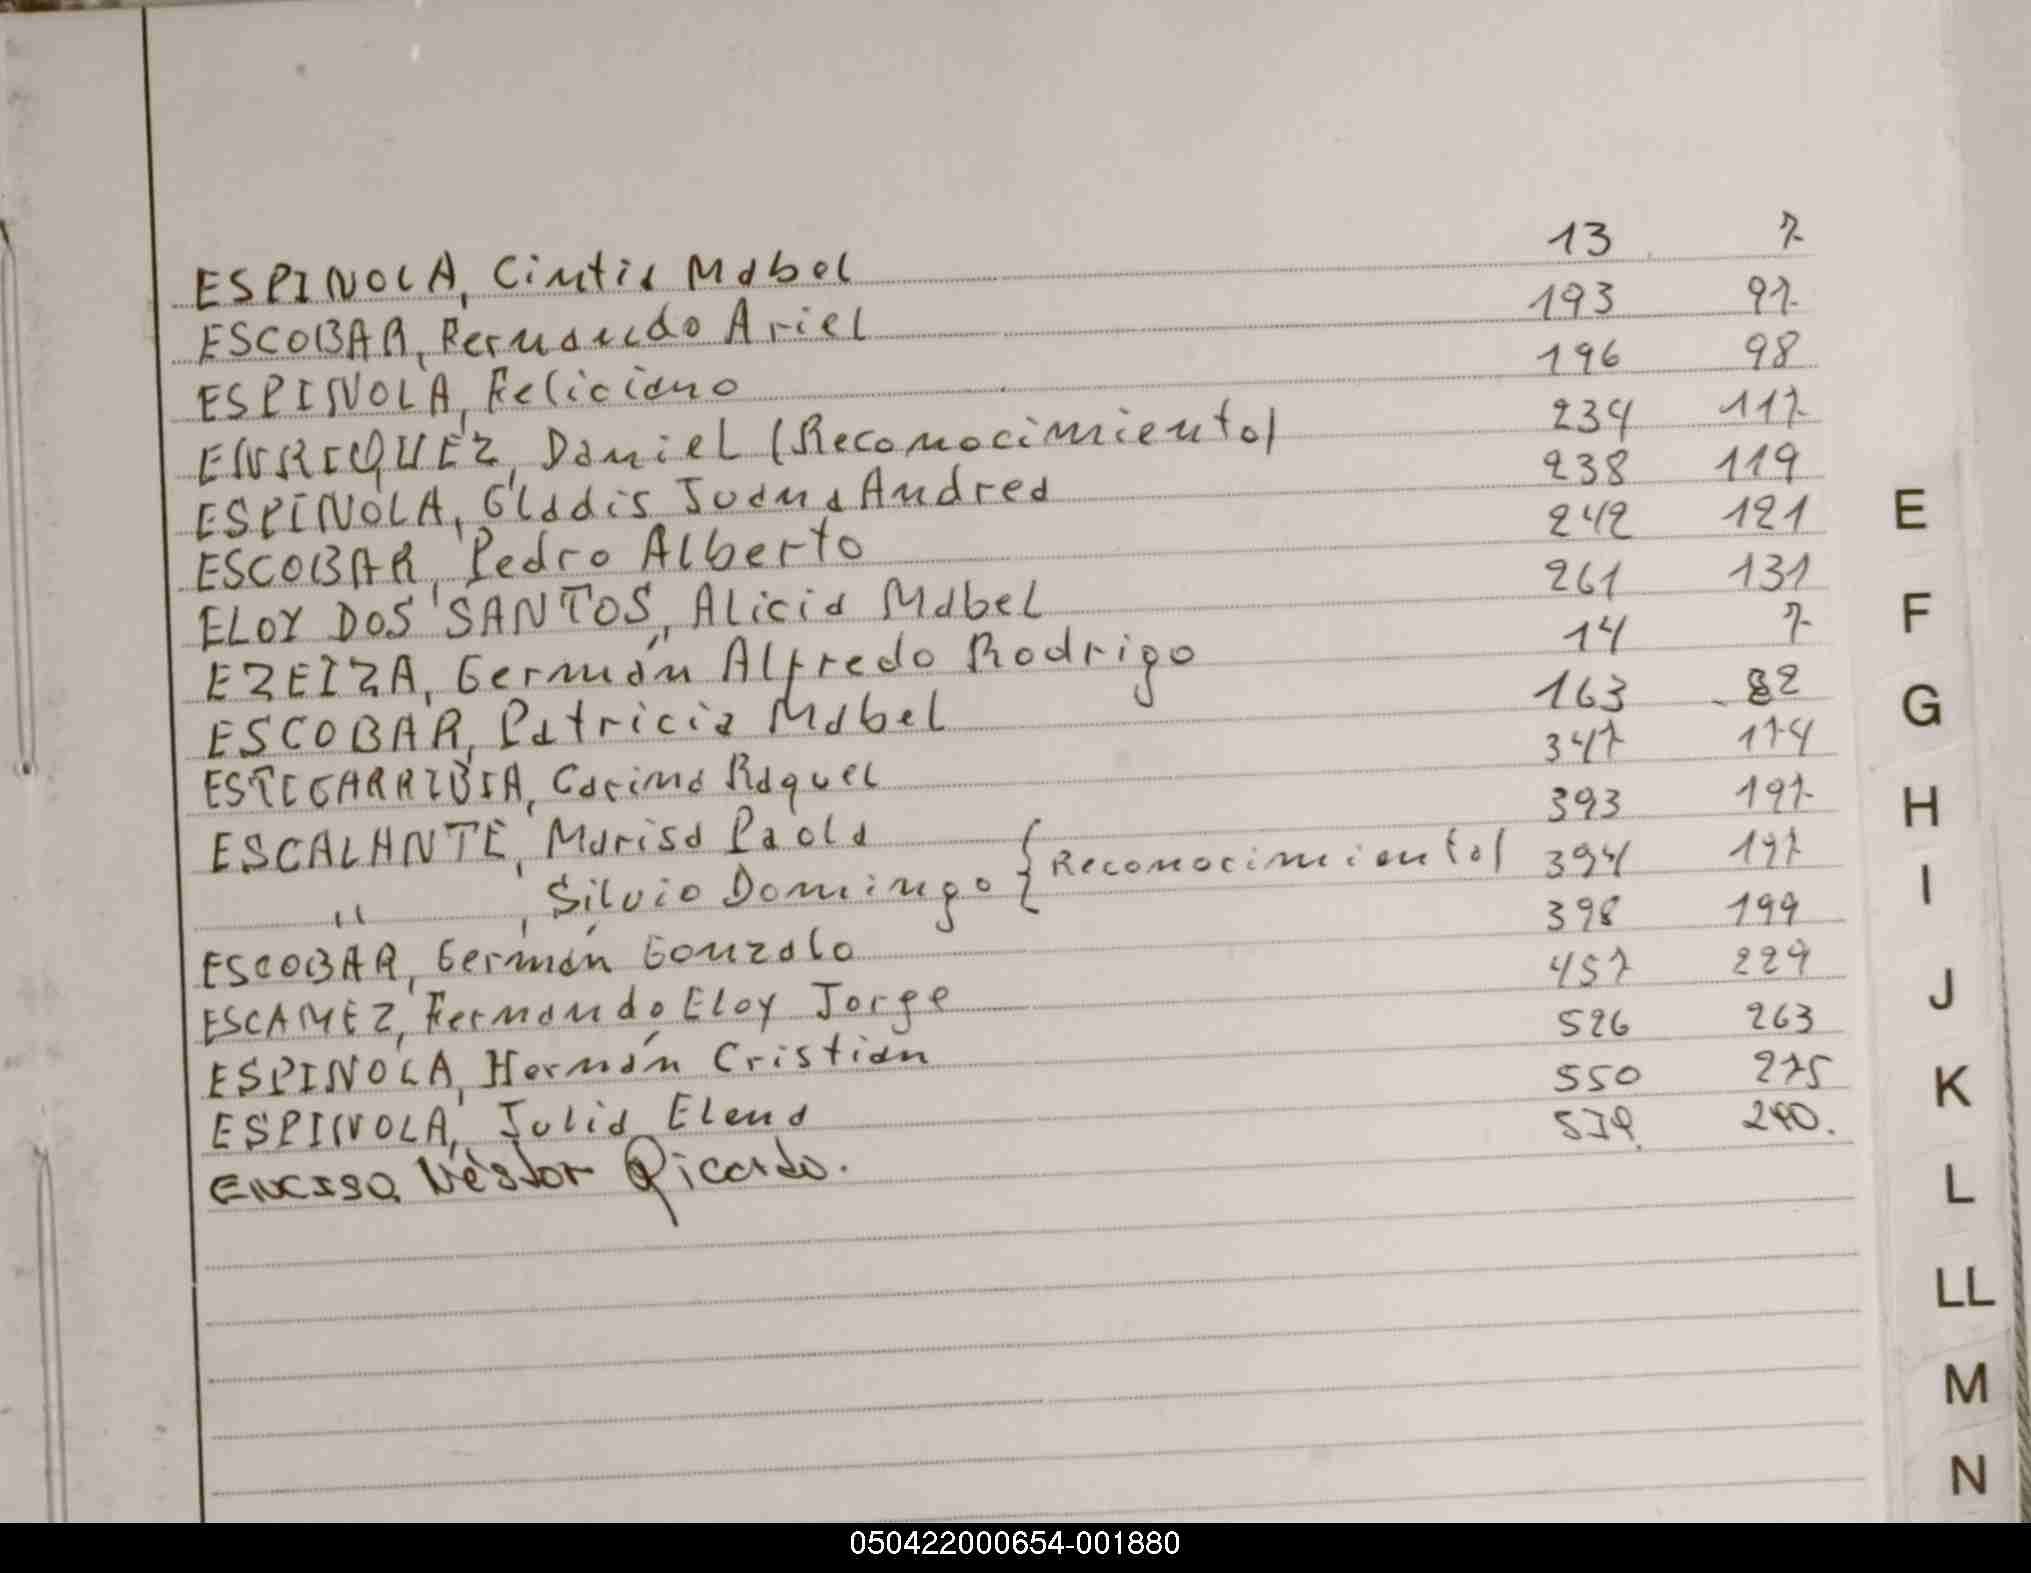 ESPINOLA, Cintia Mabel 13 7
ESCOBAR, Fernando Ariel 193 97
ESPINOLA, Feliciano 196 98
ENRIQUEZ, Daniel (Reconocimiento) 234 117
ESPINOLA, Gladis Juana Andrea 238 119
ESCOBAR, Pedro Alberto 242 121
ELOY DOS SANTOS, Alicia Mabel 261 131
EZEIZA, Germán Alfredo Rodrigo 14 7
ESCOBAR, Patricia Mabel 163 82
ESTIGARRIBIA, Carina Raquel 347 174
ESCALANTE, Marisa Paola 393 197
" , Silvio Domingo { Reconocimiento) 394 197
ESCOBAR, Germán Gonzalo 398 199
ESCAMEZ, Fernando Eloy Jorge 457 229
ESPINOLA, Hernán Cristian 526 263
ESPINOLA, Julia Elena 550 275
ENCISO, Néstor Ricardo. 579. 290.
E
F
G
H
I
J
K
L
LL
M
N
050422000654-001880